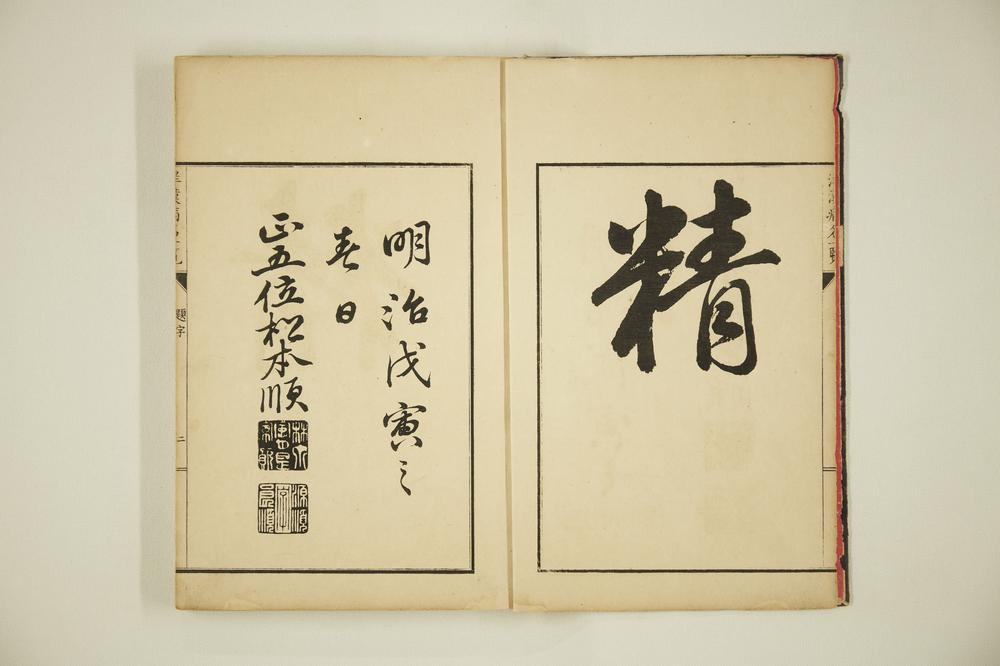 精
明治戊寅之
春日
正五位松本順
題字
二